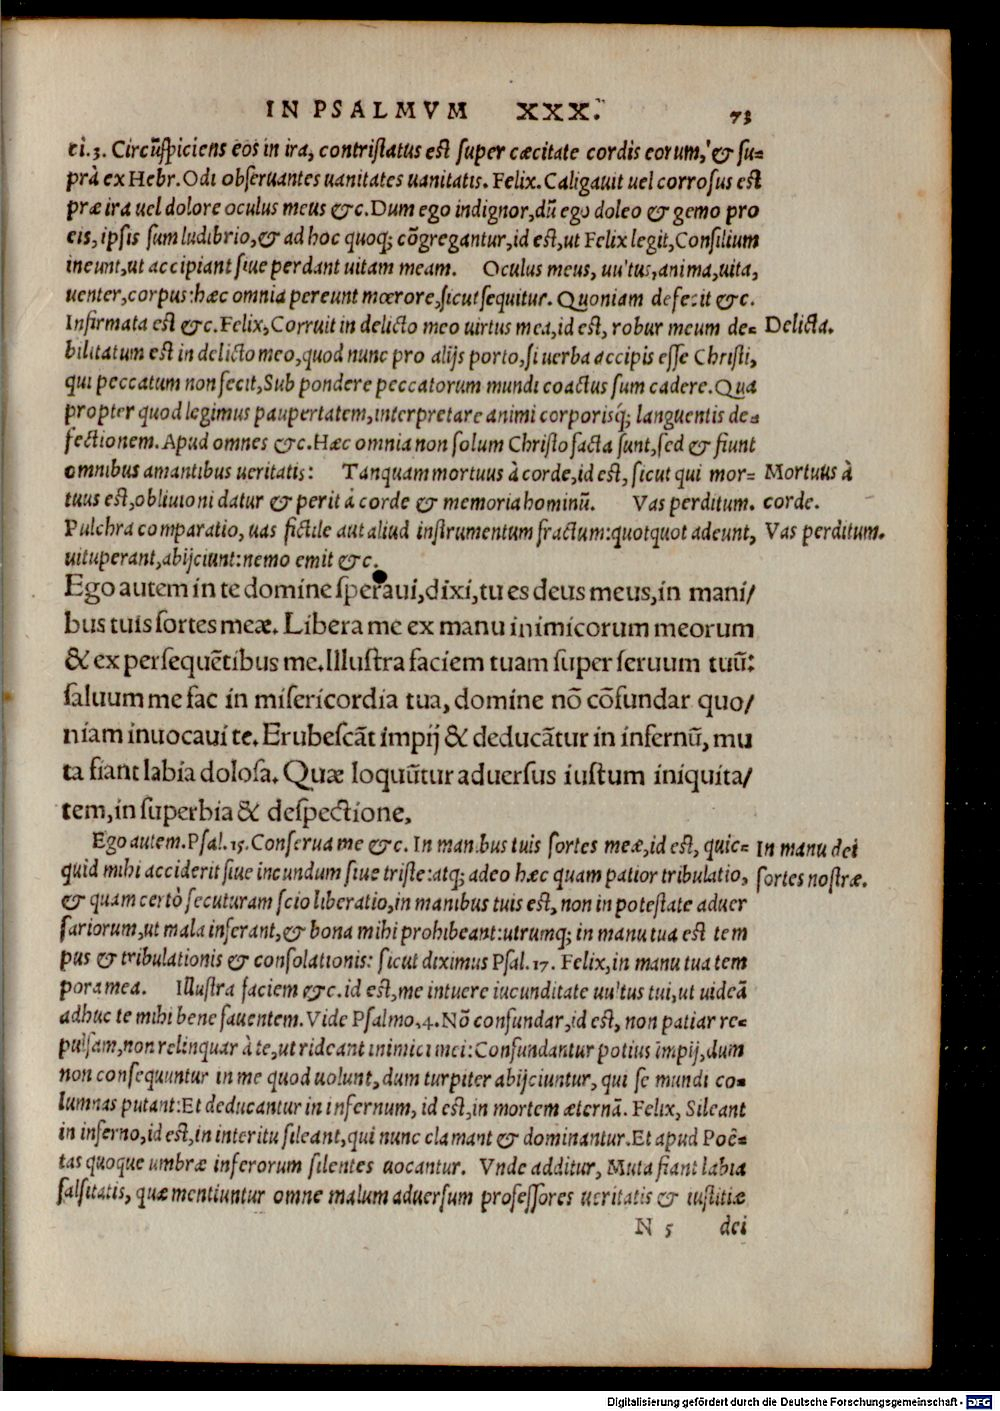 IN PSALMVM XXX. 73
ci.3. Circũſpiciens eos in ira, contriſtatus eſt ſuper cæcitate cordis eorum, & ſu=
prà ex Hebr. Odi obſeruantes uanitates uanitatis. Felix. Caligauit uel corroſus eſt
præ ira uel dolore oculus meus &c. Dum ego indignor, dũ ego doleo & gemo pro
eis, ipſis ſum ludibrio, & ad hoc quoq; cõgregantur, id eſt, ut Felix legit, Conſilium
ineunt, ut accipiant ſiue perdant uitam meam. Oculus meus, uultus, anima, uita,
uenter, corpus: hæc omnia pereunt mœrore, ſicut ſequitur. Quoniam defecit &c.
Infirmata eſt &c. Felix, Corruit in delicto meo uirtus mea, id eſt, robur meum de= Delicta.
bilitatum eſt in delicto meo, quod nunc pro alijs porto, ſi uerba accipis eſſe Chriſti,
qui peccatum non fecit, Sub pondere peccatorum mundi coactus ſum cadere. Qua
propter quod legimus paupertatem, interpretare animi corporisq́; languentis de=
fectionem. Apud omnes &c. Hæc omnia non ſolum Chriſto facta ſunt, ſed & fiunt
omnibus amantibus ueritatis: Tanquam mortuus à corde, id eſt, ſicut qui mor= Mortuus à
tuus eſt, obliuioni datur & perit à corde & memoria hominũ. Vas perditum. corde.
Pulchra comparatio, uas fictile aut aliud inſtrumentum fractum: quotquot adeunt, Vas perditum.
uituperant, abijciunt: nemo emit &c.
Ego autem in te domine ſperaui, dixi, tu es deus meus, in mani/
bus tuis ſortes meæ. Libera me ex manu inimicorum meorum
& ex perſequẽtibus me. Illuſtra faciem tuam ſuper ſeruum tuũ:
ſaluum me fac in miſericordia tua, domine nõ cõfundar quo/
niam inuocaui te. Erubeſcãt impij & deducãtur in infernũ, mu
ta fiant labia doloſa. Quæ loquũtur aduerſus iuſtum iniquita/
tem, in ſuperbia & deſpectione,
Ego autem. Pſal. 15. Conſerua me &c. In manibus tuis ſortes meæ, id eſt, quic= In manu dei
quid mihi acciderit ſiue iucundum ſiue triſte: atq; adeo hæc quam patior tribulatio, ſortes noſtræ.
& quam certò ſecuturam ſcio liberatio, in manibus tuis eſt, non in poteſtate aduer
ſariorum, ut mala inferant, & bona mihi prohibeant: utrumq; in manu tua eſt tem
pus & tribulationis & conſolationis: ſicut diximus Pſal. 17. Felix, in manu tua tem
pora mea. Illuſtra faciem &c. id eſt, me intuere iucunditate uultus tui, ut uideã
adhuc te mihi bene fauentem. Vide Pſalmo. 4. Nõ confundar, id eſt, non patiar re=
pulſam, non relinquar à te, ut rideant inimici mei: Confundantur potius impij, dum
non conſequuntur in me quod uolunt, dum turpiter abijciuntur, qui ſe mundi co=
lumnas putant: Et deducantur in infernum, id eſt, in mortem æternã. Felix, Sileant
in inferno, id eſt, in interitu ſileant, qui nunc clamant & dominantur. Et apud Poê=
tas quoque umbræ inferorum ſilentes uocantur. Vnde additur, Muta fiant labia
falſitatis, quæ mentiuntur omne malum aduerſum profeſſores ueritatis & iuſtitiæ
N 5 dei
Digitalisierung gefördert durch die Deutsche Forschungsgemeinschaft - DFG